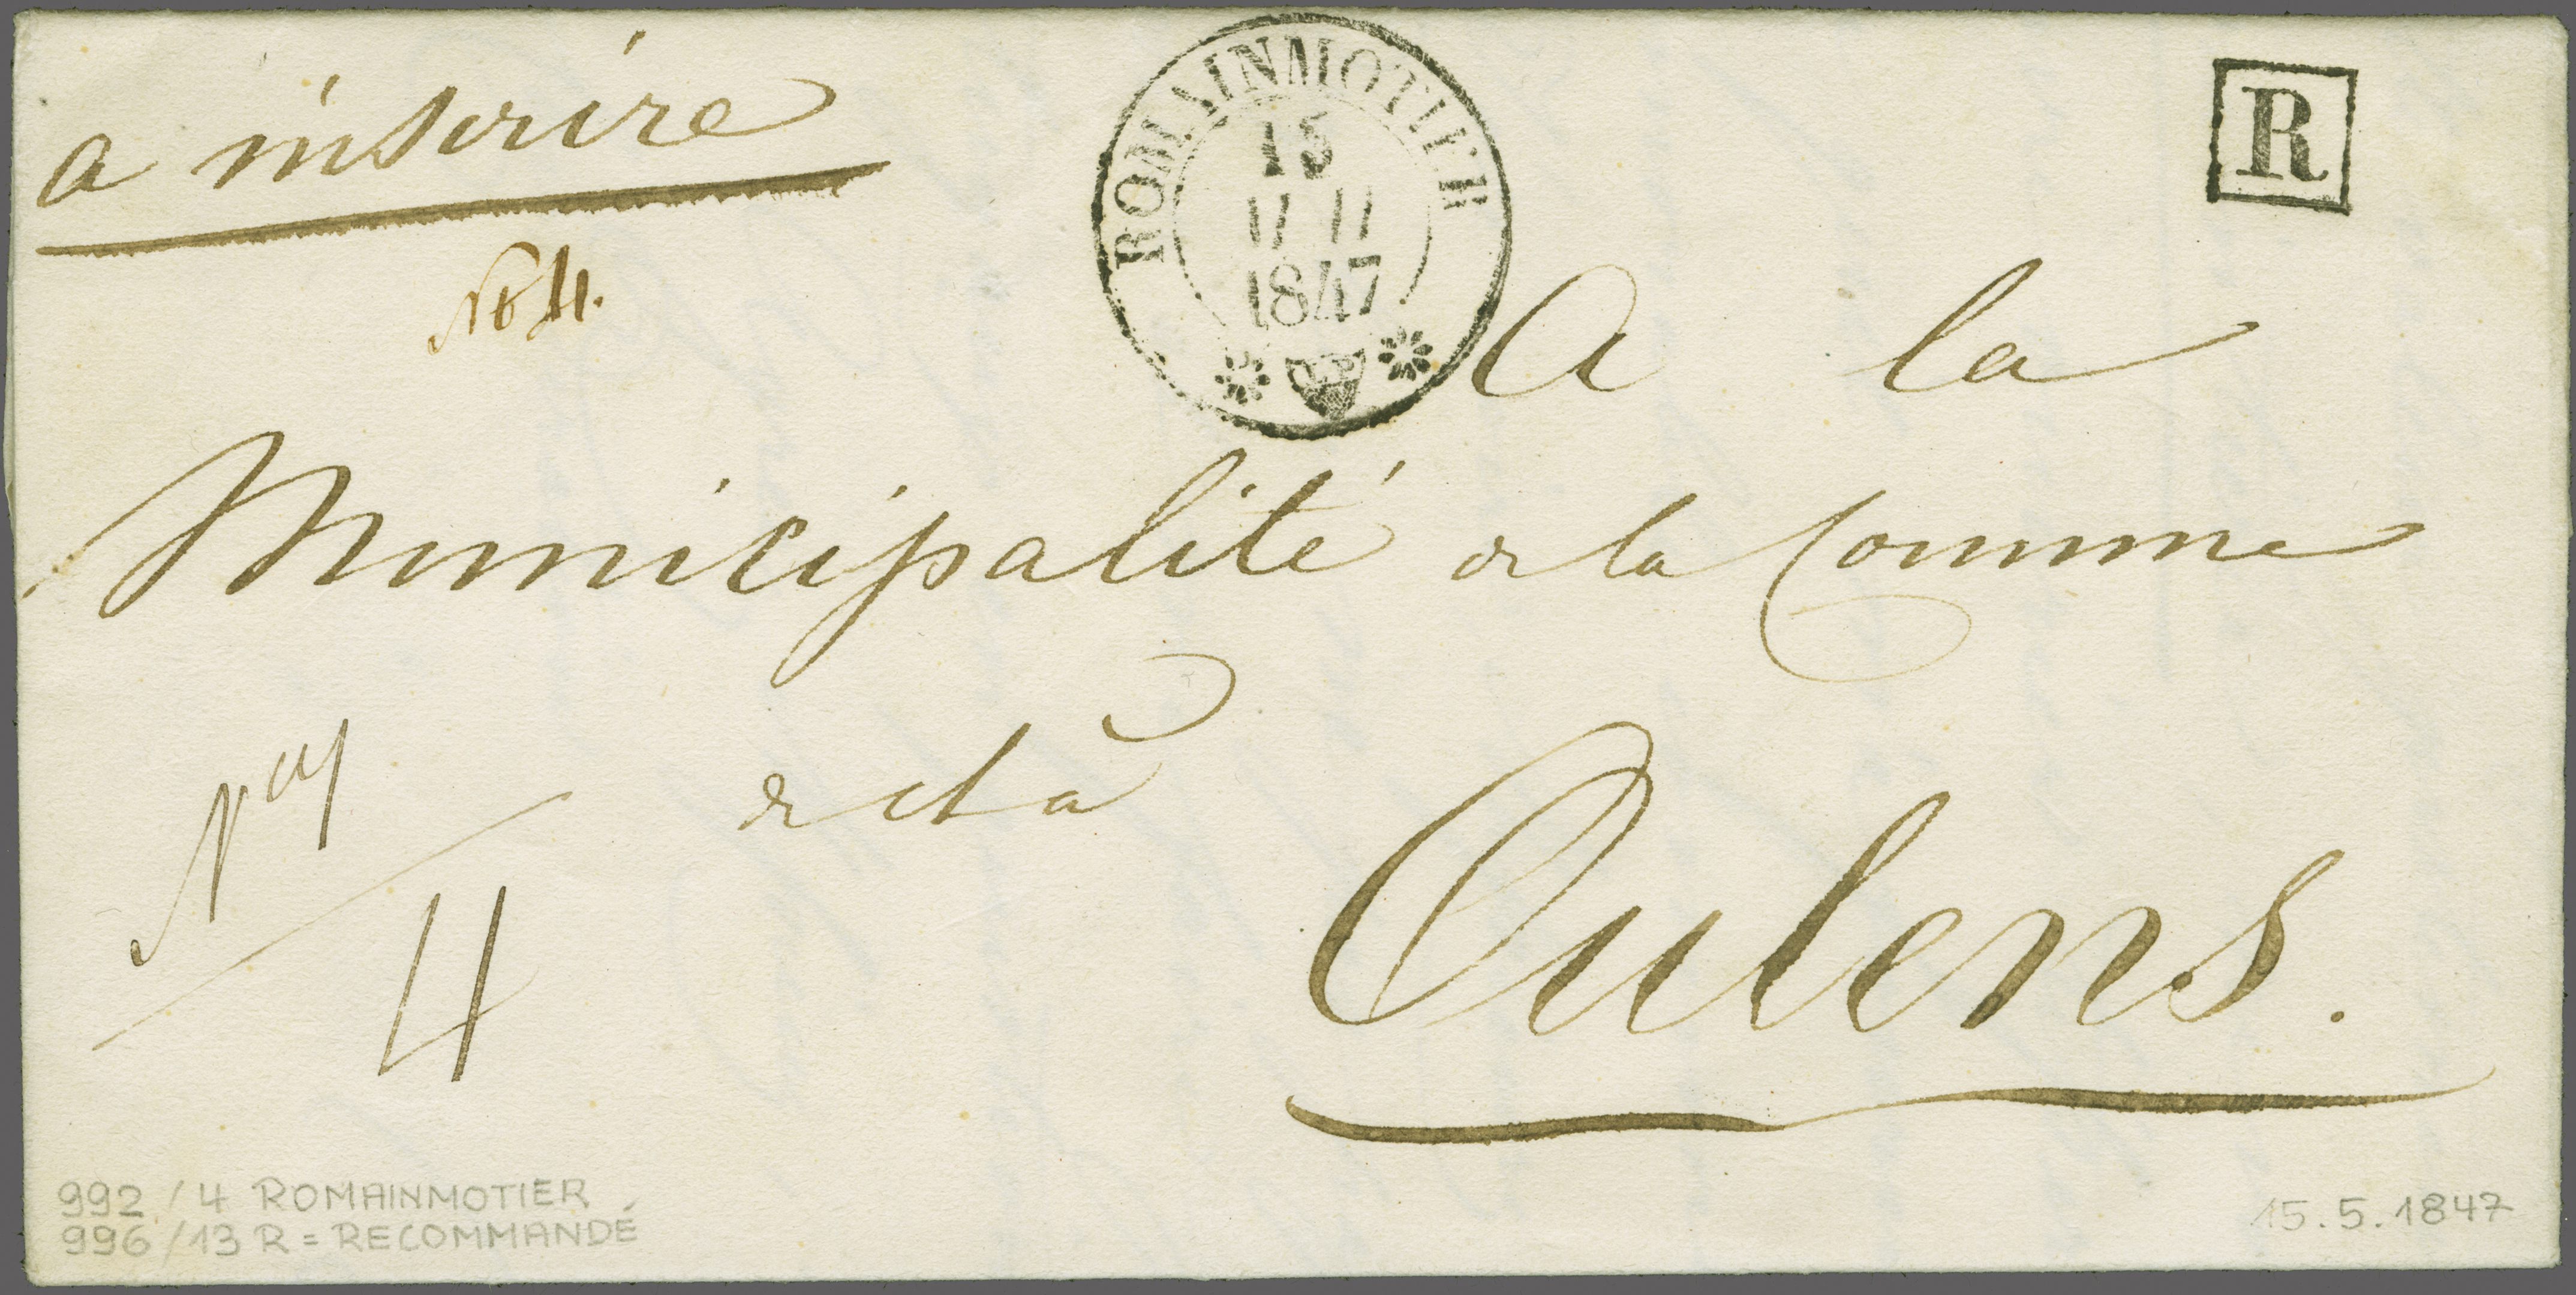 a inscrire
ROMAINMOTIER
15
1847
R
No 4.
A la
Municipalité de la Commune
Oulens.
4
992 / 4 ROMAINMOTIER
996 / 13 R = RECOMMANDÉ
15.5.1847